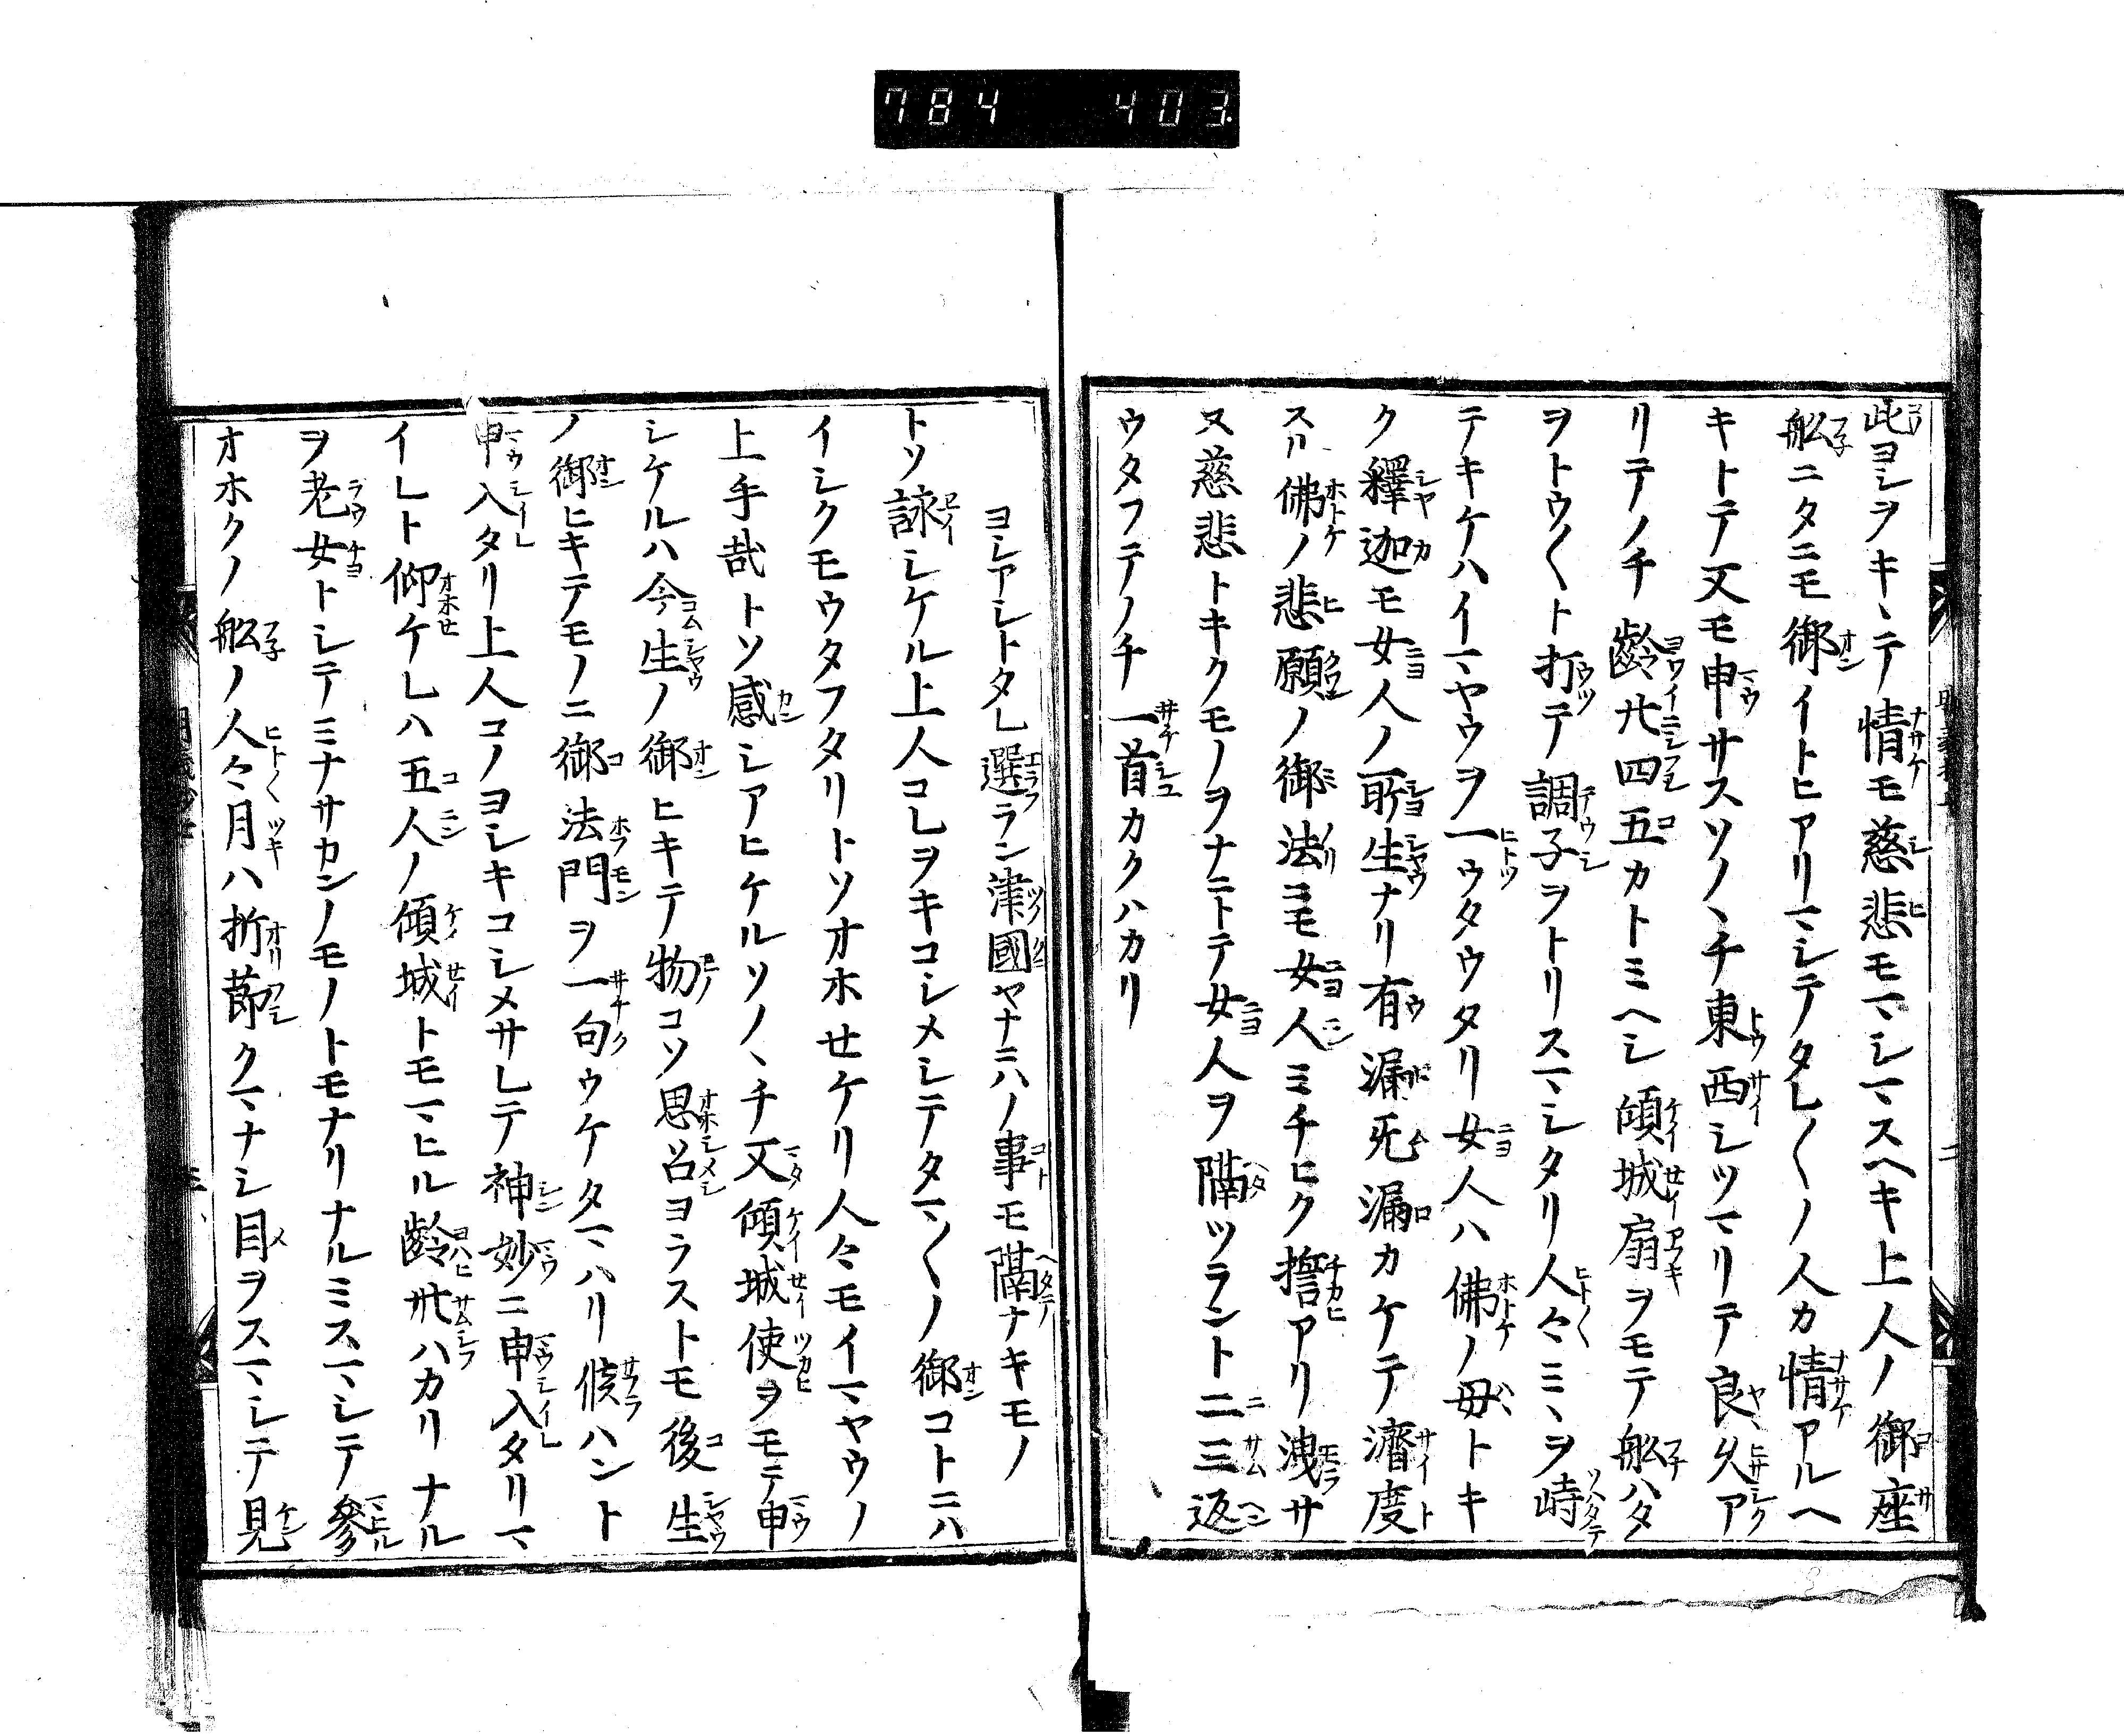 784 403
此ヨシヲキヽテ情モ慈悲モマシマスヘキ上人ノ御座
舩ニタニモ御イトヒアリマシテタレ〱ノ人カ情アルヘ
キトテ又モ申サスソノヽチ東西シツマリテ良久ア
リテノチ齡廿四五カトミヘシ傾城扇ヲモテ舩ハタ
ヲトウ〱ト打テ調子ヲトリスマシタリ人々ミヽヲ峙
テキケハイマヤウヲ一ウタウタリ女人ハ佛ノ母トキ
ク釋迦モ女人ノ所生ナリ有漏无漏カケテ濟度
スル佛ノ悲願ノ御法ニモ女人ミチヒク擔アリ洩サ
ヌ慈悲トキクモノヲナニトテ女人ヲ隔ツラント二三返
ウタフテノチ一首カクハカリ
ヨシアシトタレ選ラン津國ヤナニハノ事モ隔ナキモノ
トソ詠シケル上人コレヲキコシメシテタマ〱ノ御コトニハ
イシクモウタフタリトソオホセケリ人々モイマヤウノ
上手哉トソ感シアヒケルソノヽチ又傾城使ヲモテ申
シケルハ今生ノ御ヒキテ物コソ思召ヨラストモ後生
ノ御ヒキテモノニ御法門ヲ一句ウケタマハリ候ハント
申入タリ上人コノヨシキコシメサレテ神妙ニ申入タリマ
イレト仰ケレハ五人ノ傾城トモマヒル齡卅ハカリナル
ヲ老女トシテミナサカンノモノトモナリナルミスマシテ參
オホクノ舩ノ人々月ハ折節クマナシ目ヲスマシテ見